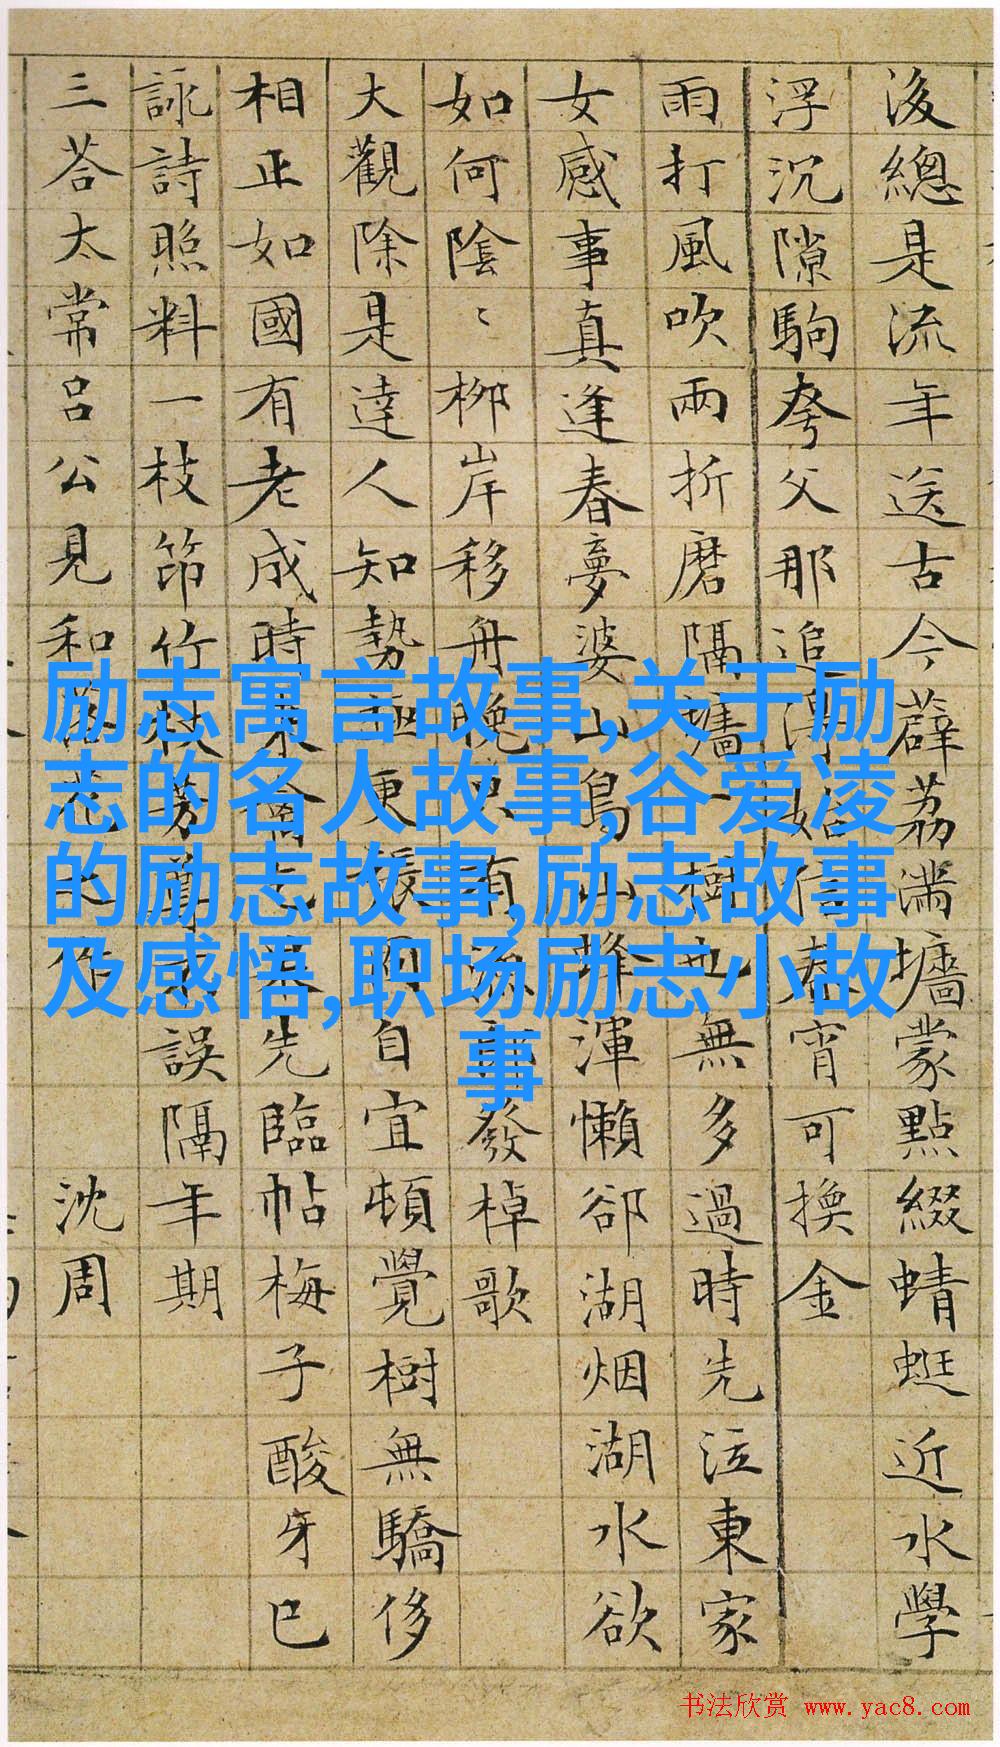 後總是流年送古今薜荔满墻蒙點綴蜻蜓近水學
浮沉隙駒夸父那追得始信春宵可換金
雨打風吹兩折磨隔墻一樹也無多過時先泣東家
女感事真逢春夢婆山鳥山蜂渾懶卻湖烟湖水欲
如何陰〻柳岸移舟晚只有發棹歌
大觀除是達人知勢極更自宜頓覺樹無驕侈
相正如國有老成時先臨帖梅子酸牙已
詠詩照料一枝笻竹杖芳尊誤隔年期
三荅太常呂公見和落花之作 沈周
励志寓言故事,关于励
志的名人故事,谷爱凌
的励志故事,励志故事
及感悟,职场励志小故
事
书法欣赏 www.yac8.com